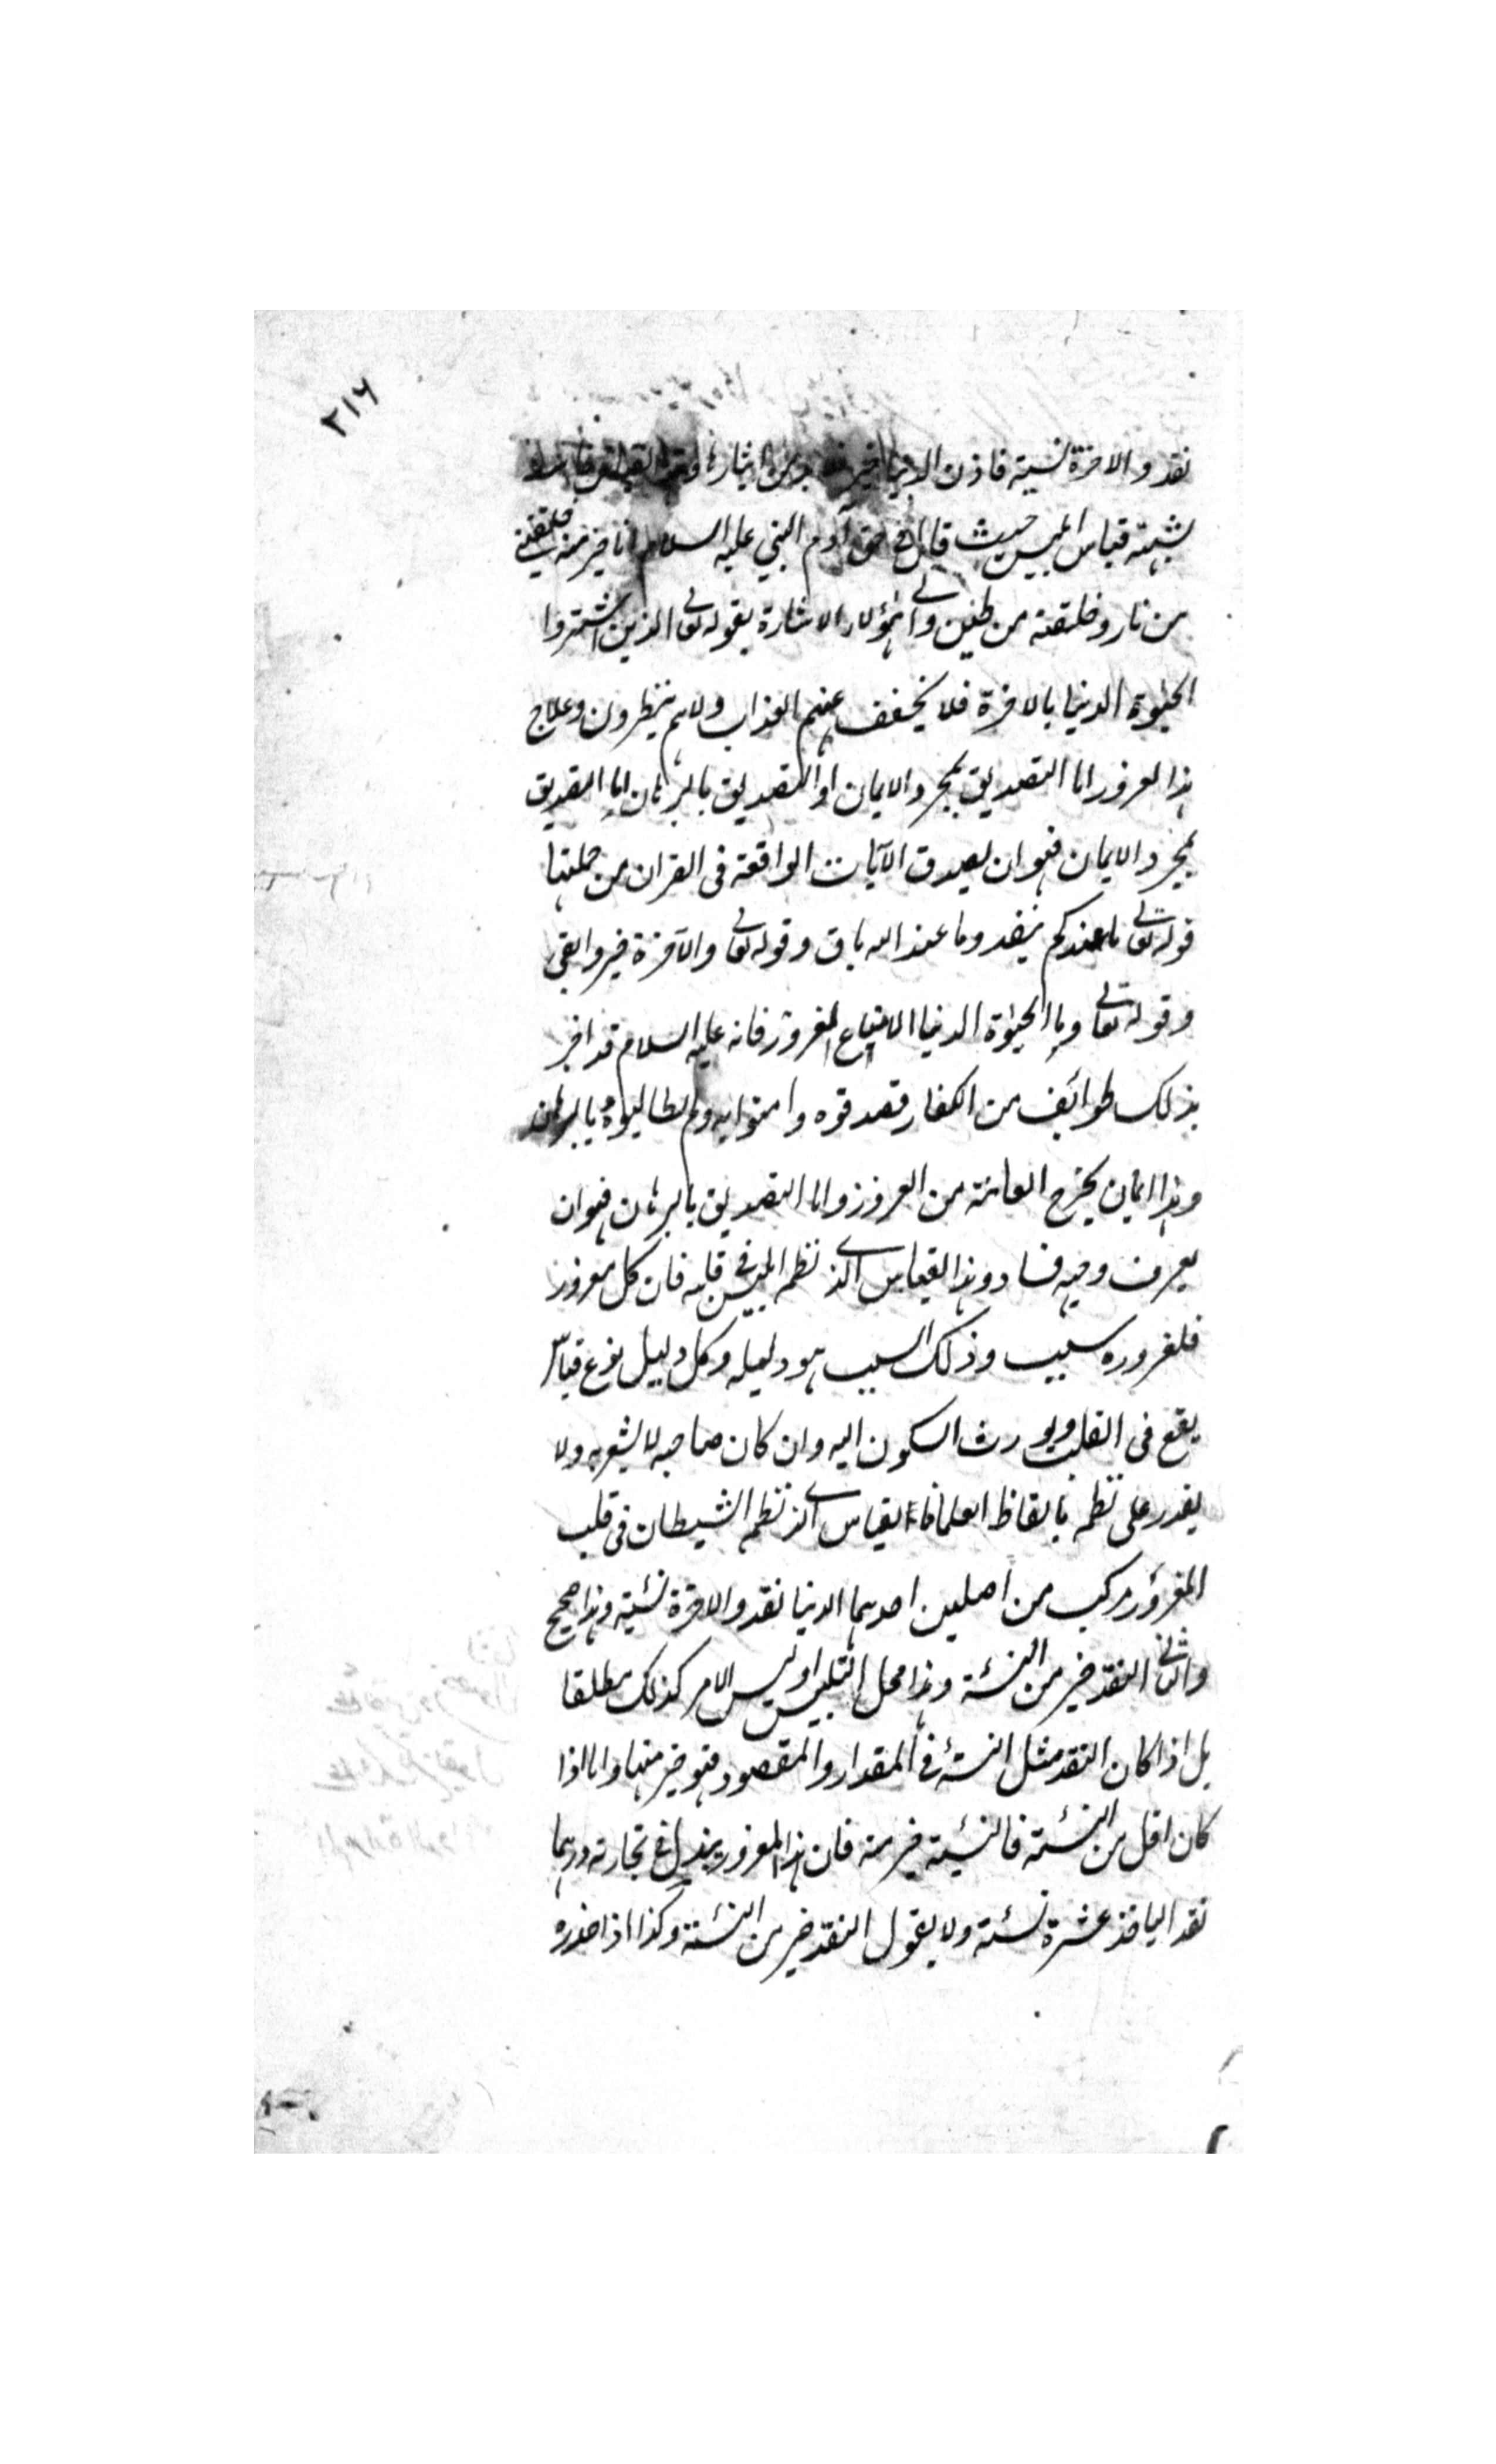 ٢١٦
نقد والاخرة نسيئة فاذن الدنيا خير
يشبه قياس ابليس حيث قال في حق آدم النبي عليه السلام انا خير منه خلقتني
من نار وخلقته من طين والى هؤلاء الاشارة بقوله تعالى الذين اشتروا
الحيوة الدنيا بالاخرة فلا يخفف عنهم العذاب ولا هم ينظرون وعلاج
هذا الغرور اما التصديق بمجرد الايمان او التصديق بالبرهان اما التصديق
بمجرد الايمان فهو ان يصدق الآيات الواقعة فى القران من جملتها
قوله تعالى ما عندكم ينفد وما عند الله باق وقوله تعالى والآخرة خير وابقى
وقوله تعالى وما الحيوة الدنيا الا متاع الغرور فانه عليه السلام قد اخبر
بذلك طوائف من الكفار فصدقوه وامنوا به ولم يطالبوه بالبرهان
وهذا ايمان يخرج العامة من الغرور واما التصديق بالبرهان فهو ان
يعرف وجه فساد وهذا القياس الذى نظمه ابليس فى قلبه فان كل مغرور
فلغروره سبب وذلك السبب هو دليله وكل دليل نوع قياس
يقع فى القلب ويورث السكون اليه وان كان صاحبه لا يشعر به ولا
يقدر على نظمه بالفاظ العلماء فالقياس الذى نظمه الشيطان فى قلب
المغرور مركب من اصلين احدهما الدنيا نقد والاخرة نسئية وهذا صحيح
والثانى النقد خير من النسئة وهذا محل التلبيس اوليس الامر كذلك مطلقا
بل اذا كان النقد مثل النسئة فى المقدار والمقصود فهو خير منها واما اذا
كان اقل من النسئة فالنسئية خير منه فان هذا المغرور يبذل فى تجارته درهما
نقدا لياخذ عشرة نسئة ولا يقول النقد خير من النسئة وكذا اذا حذره